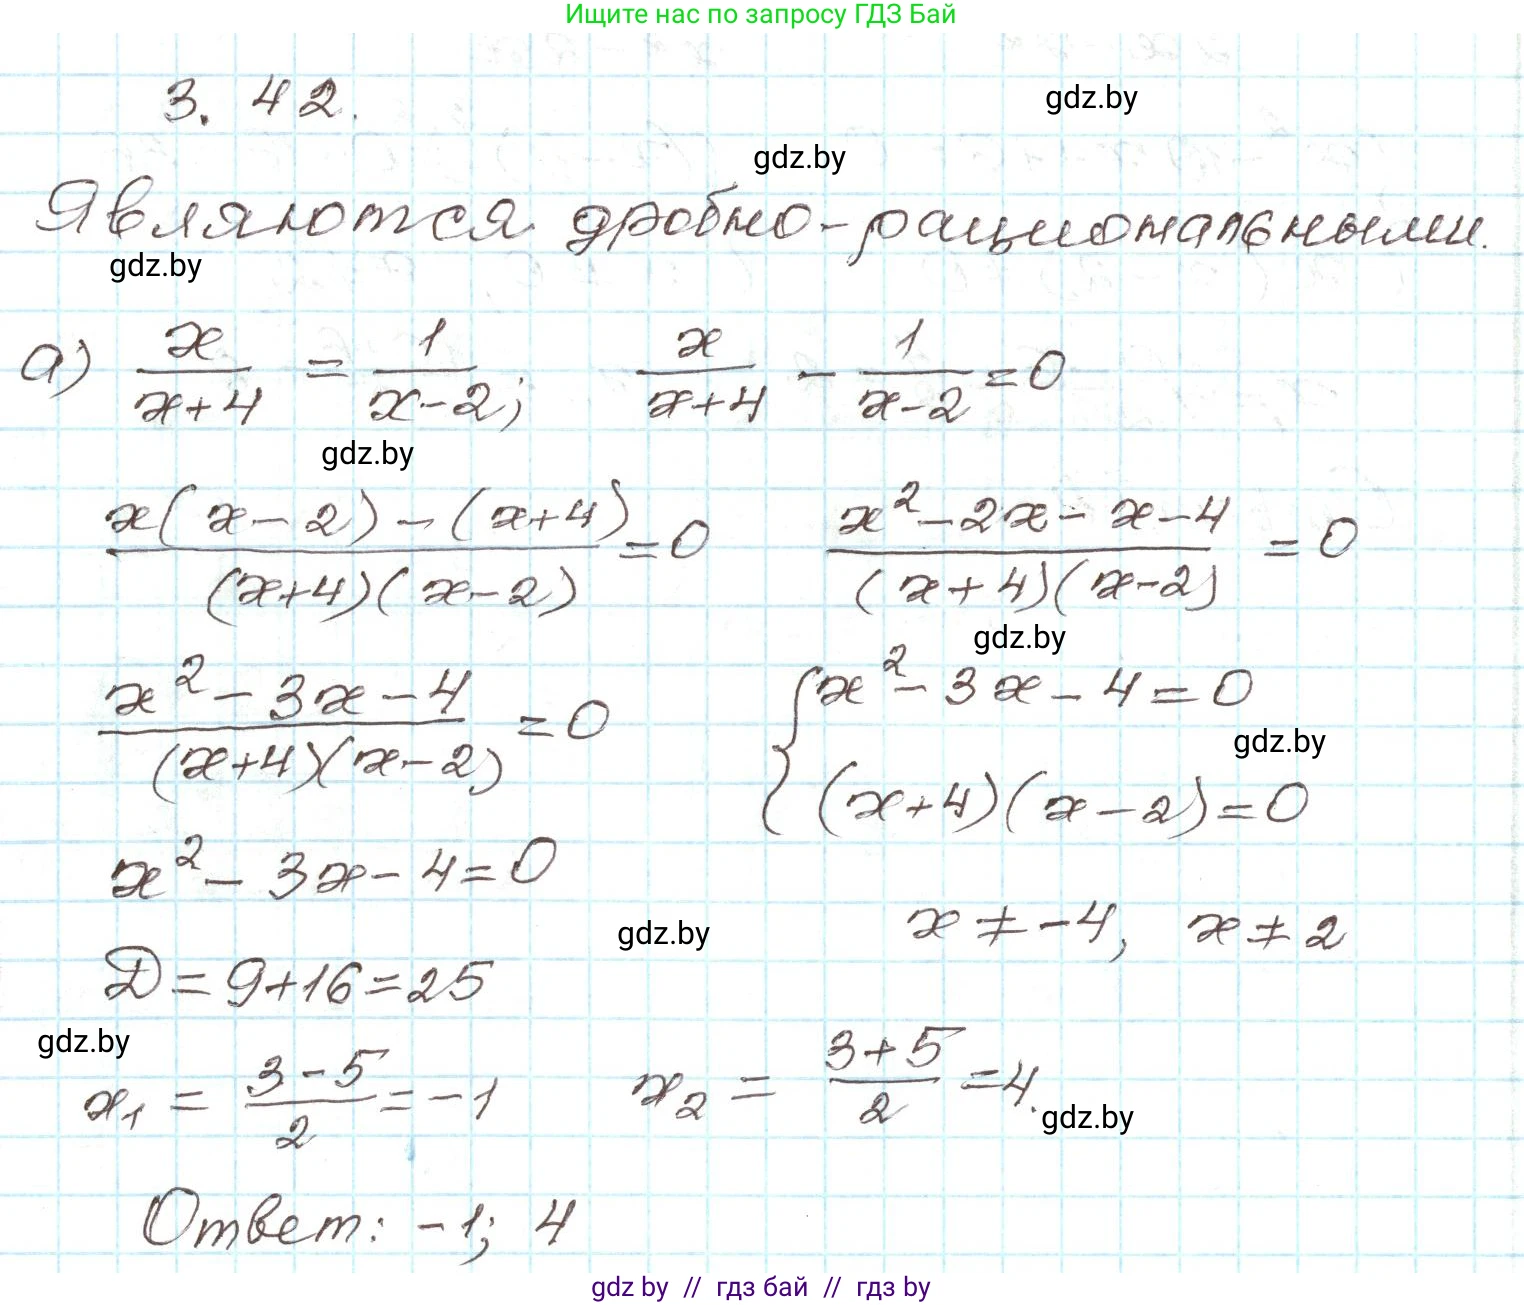 Ищите нас по запросу ГДЗ Бай
3. 42.
gdz.by
gdz.by
Являются дробно-рациональными.
gdz.by
а) x/(x+4) = 1/(x-2); x/(x+4) - 1/(x-2) = 0
gdz.by
(x(x-2)-(x+4))/((x+4)(x-2)) = 0 (x²-2x-x-4)/((x+4)(x-2)) = 0
gdz.by
(x²-3x-4)/((x+4)(x-2)) = 0 { x²-3x-4=0
gdz.by
(x+4)(x-2)=0
x²-3x-4=0
gdz.by
x≠-4, x≠2
D=9+16=25
gdz.by
x₁ = (3-5)/2 = -1 x₂ = (3+5)/2 = 4.
gdz.by
Ответ: -1; 4
gdz by // гдз бай // гдз by